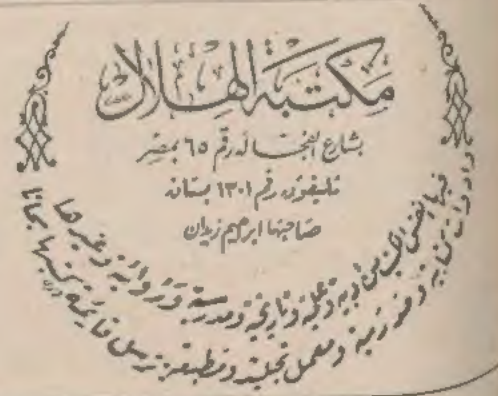 مكتبة الهلال
بشارع الفجالة رقم ٦٥ بمصر
تليفون رقم ١٣٠١ بستان
صاحبها ابرهيم زيدان
فيها انفس الكتب من أدبية وعلمية وتاريخية ومدرسية وروائية وغيرها
وادوات كتابية ومعمل تجليد ومطبعة ترسل قايمة كتبها مجانا